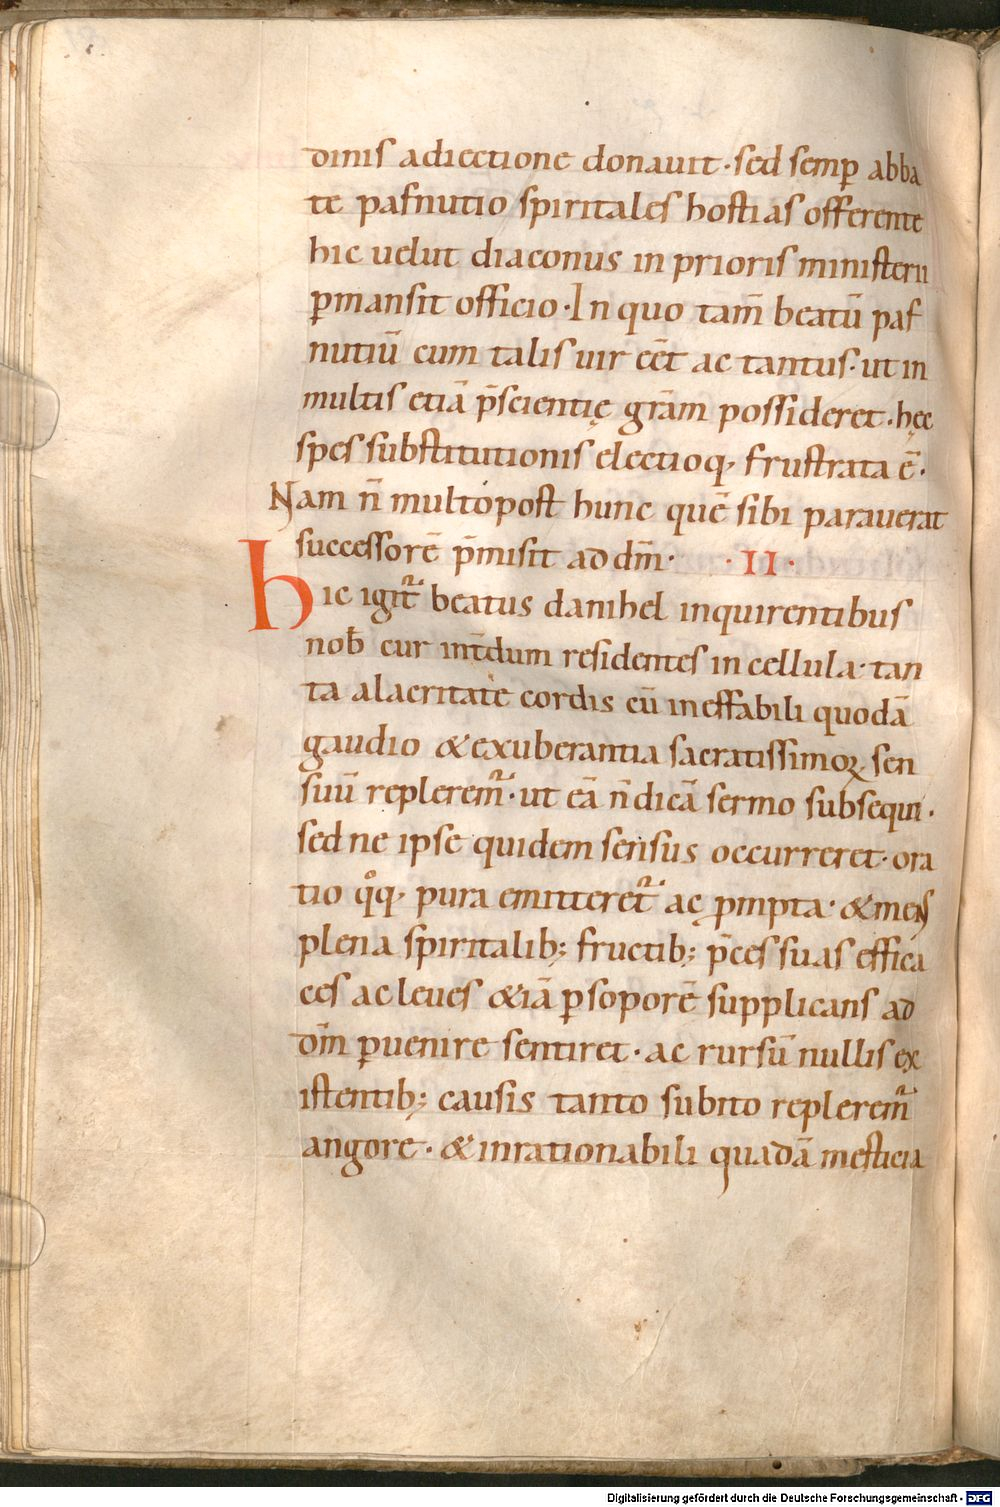 dinis adiectione donauit· sed semp̲ abba
te pafnutio spiritales hostias offerente
hic uelut diaconus in prioris ministerii
p̲mansit officio· In quo tam̄ beatū paf
nutiū cum talis uir eēt ac tantus· ut in
multis etiā p̄scientię grām possideret· hęc
spes substitutionis electioq, frustrata ē·
Nam n̄ multopost hunc quē sibi parauerat
successorē p̄misit ad dm̄· ·II·
hic igit᷑ beatus danihel inquirentibus
nob̄ cur int̄dum residentes in cellula· tan
ta alacritate cordis cū ineffabili quodā
gaudio & exuberantia sacratissimoꝝ sen
suū replerem᷑· ut eā n̄ dicā sermo subsequi·
sed ne ipse quidem sensus occurreret· ora
tio qͦq, pura emitteret᷑ ac p̲mpta· & mens
plena spiritalib; fructib; p̄ces suas effica
ces ac leues &iā p̲ soporē supplicans ad
dm̄ p̲uenire sentiret· ac rursū nullis ex
istentib; causis tanto subito replerem᷑
angore· & inrationabili quadā mesticia
Digitalisierung gefördert durch die Deutsche Forschungsgemeinschaft - DFG